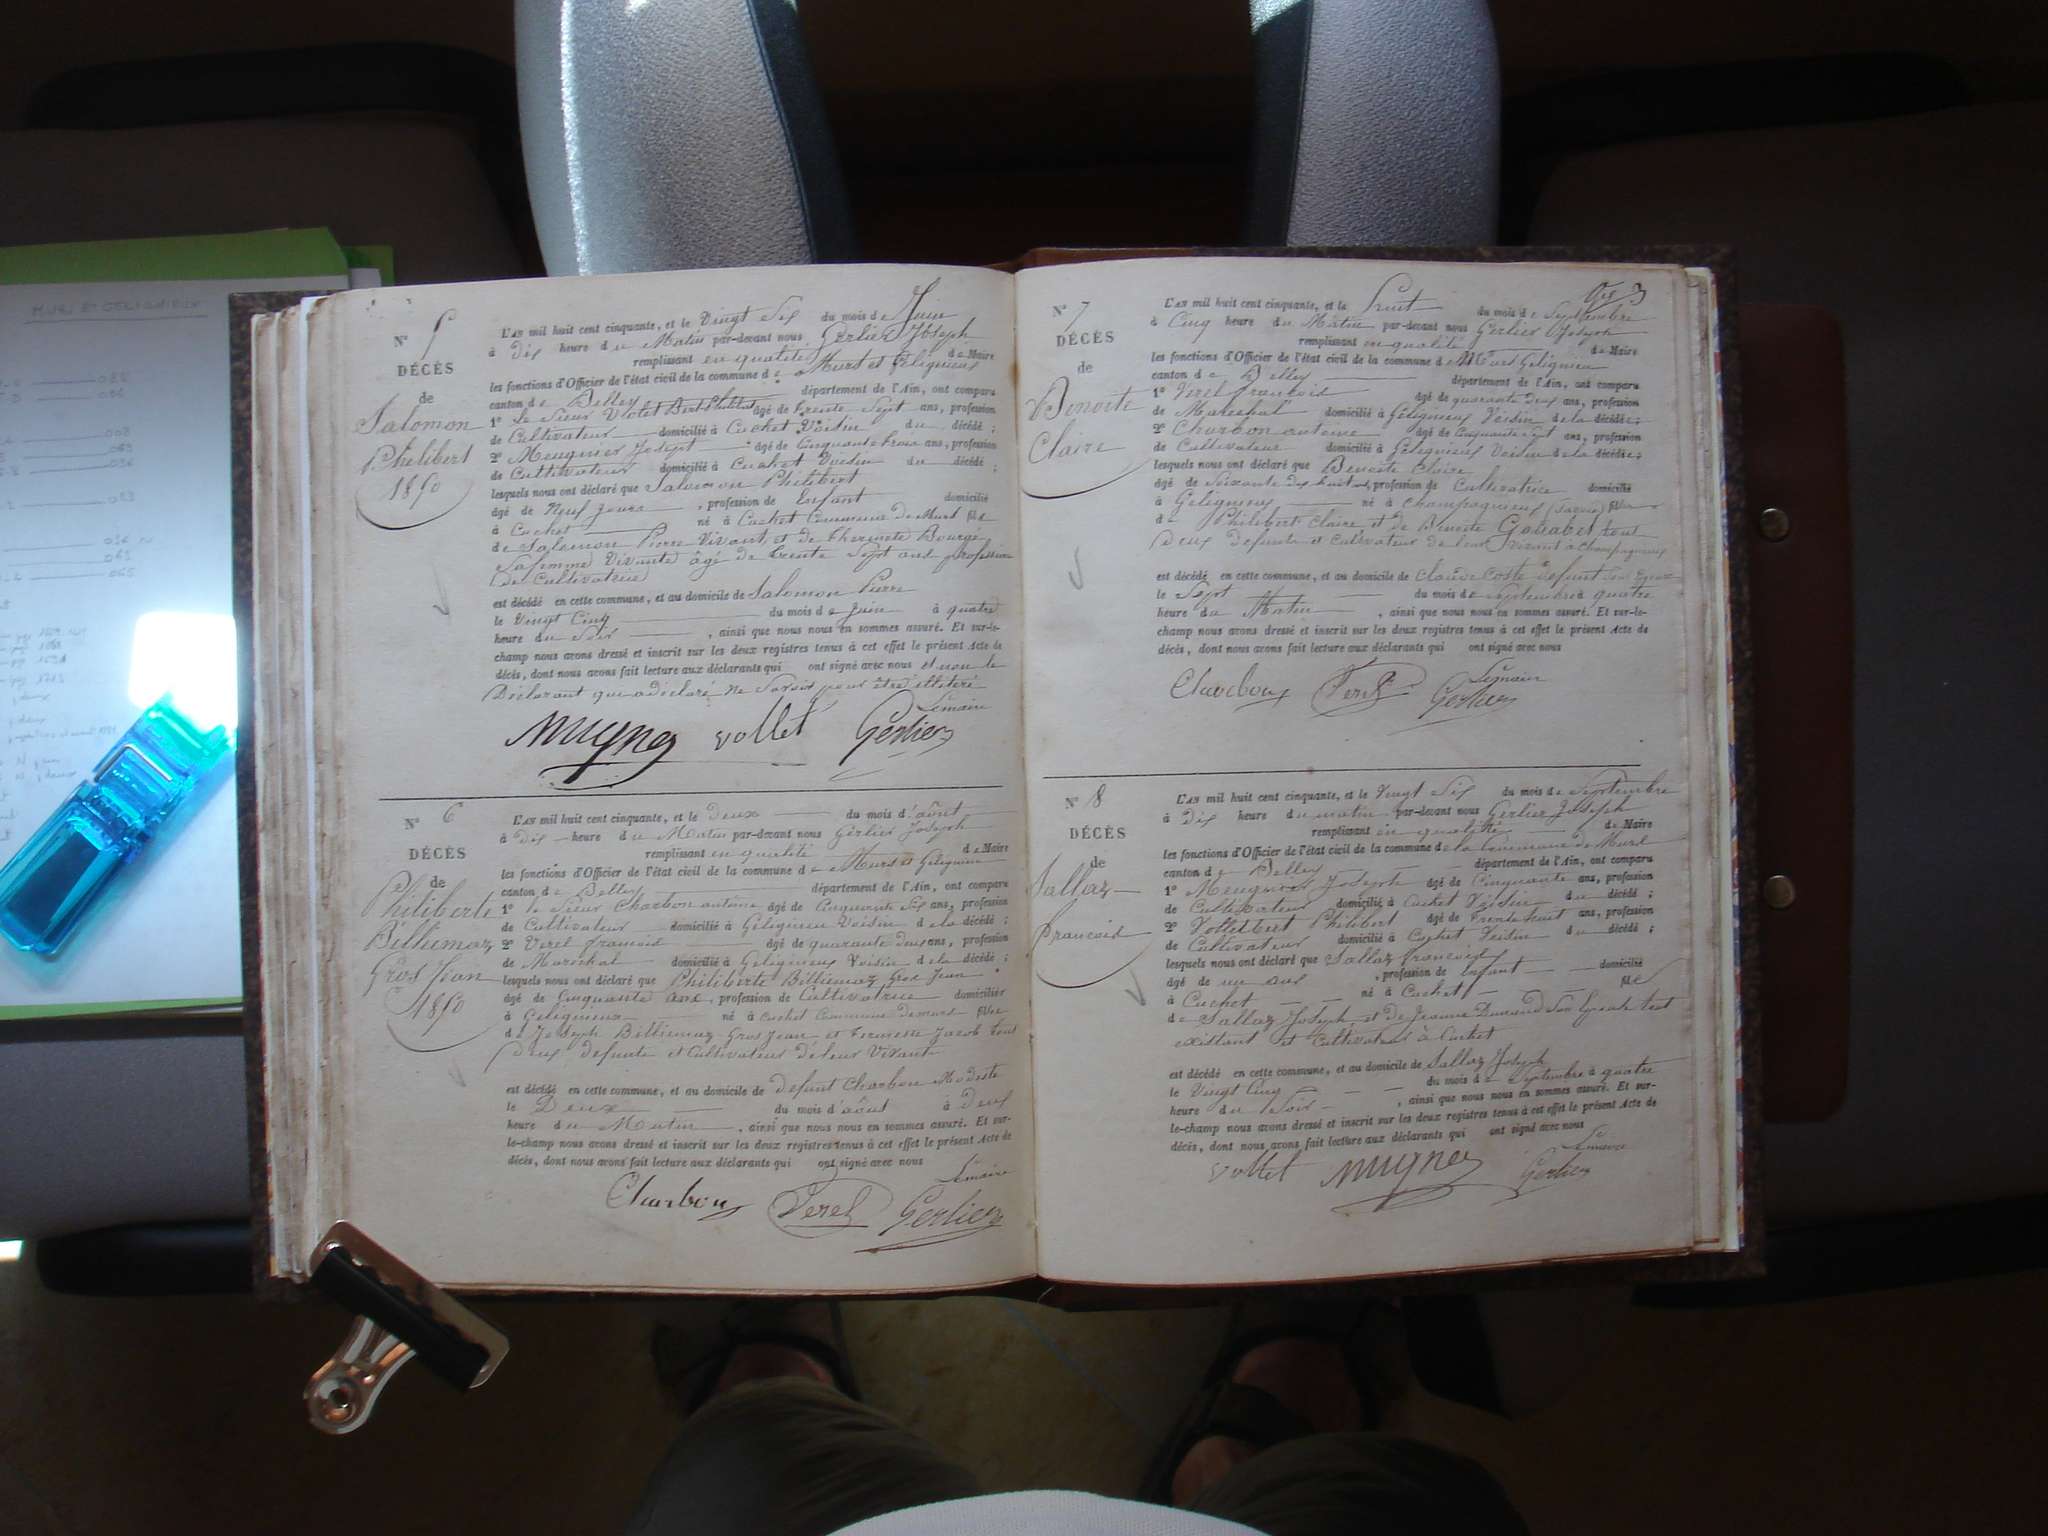 MURS ET GELIGNIEUX
N° 5
DÉCÈS
de
Salomon
Philibert
1850
L'AN mil huit cent cinquante, et le Vingt Six du mois de Juin
à Dix heure du Matin par-devant nous Gerlier Joseph
remplissant en qualité de Maire
les fonctions d'Officier de l'état civil de la commune de Murs et Gelignieux
canton de Belley département de l'Ain, ont comparu
1° le Sieur Violet Bert Philibert âgé de Trente Sept ans, profession
de Cultivateur domicilié à Cuchet Voisin du décédé ;
2° Meugnier Joseph âgé de Cinquante trois ans, profession
de Cultivateur domicilié à Cuchet Voisin du décédé ;
lesquels nous ont déclaré que Salomon Philibert
âgé de Neuf jours , profession de Enfant domicilié
à Cuchet né à Cuchet Commune de Murs fils
de Salomon Pierre Vivant et de Bourge
La femme Vivante âgé de trente Sept ans profession
de Cultivatrice
est décédé en cette commune, et au domicile de Salomon Pierre
le Vingt Cinq du mois de Juin à quatre
heure du Soir , ainsi que nous nous en sommes assuré. Et sur-le-
champ nous avons dressé et inscrit sur les deux registres tenus à cet effet le présent Acte de
décès, dont nous avons fait lecture aux déclarants qui ont signé avec nous et non le
Déclarant que a déclaré ne Savoir pour être illiteré
Lemaire
Mugner vollet Gerlier
N° 6
DÉCÈS
de
Philiberte
Billiemaz
Gros Jean
1850
L'AN mil huit cent cinquante, et le Deux du mois d'août
à Dix heure du Matin par-devant nous Gerlier Joseph
remplissant en qualité de Maire
les fonctions d'Officier de l'état civil de la commune de Murs et Gelignieux
canton de Belley département de l'Ain, ont comparu
1° le Sieur Charbon antoine âgé de Cinquante Six ans, profession
de Cultivateur domicilié à Géligneux Voisin de la décédé ;
2° Verel francois âgé de quarante deux ans, profession
de Marechal domicilié à Geligneux Voisin de la décédé ;
lesquels nous ont déclaré que Philiberte Billiemaz Gros Jean
âgé de Cinquante ans, profession de Cultivatrice domicilier
à Geligneux né à Cuchet Commune de murs fille
de Joseph Billiemaz Gros Jean et Jacob tous
Deux Defunts et Cultivateur de leur Vivant
est décédé en cette commune, et au domicile de Defunt Charbon Modeste
le Deux du mois d'août à Deux
heure du Matin , ainsi que nous nous en sommes assuré. Et sur-
le-champ nous avons dressé et inscrit sur les deux registres tenus à cet effet le présent Acte de
décès, dont nous avons fait lecture aux déclarants qui ont signé avec nous
Lemaire
Charbon Verel Gerlier
3
N° 7
DÉCÈS
de
Benoite
Claire
L'AN mil huit cent cinquante, et le huit du mois de Septembre
à Cinq heure du Matin par-devant nous Gerlier Joseph
remplissant en qualité de Maire
les fonctions d'Officier de l'état civil de la commune de Murs Gelignieu
canton de Belley département de l'Ain, ont comparu
1° Verel francois âgé de quarante deux ans, profession
de Marechal domicilié à Geligneux Voisin de la décédé ;
2° Charbon antoine âgé de Cinquante Sept ans, profession
de Cultivateur domicilié à Geligneux Voisin de la décédé ;
lesquels nous ont déclaré que Benoite Claire
âgé de Soixante dix huit ans, profession de Cultivatrice domicilié
à Geligneux né à Champagneux (Savoie) fille
de Philibert Claire et de Benoite Gouabet tout
Deux Defunts et Cultivateur de leur vivant à Champagneux
est décédé en cette commune, et au domicile de Claude Coste defunt Son Epoux
le Sept du mois de Septembre à quatre
heure du Matin , ainsi que nous nous en sommes assuré. Et sur-le-
champ nous avons dressé et inscrit sur les deux registres tenus à cet effet le présent Acte de
décès, dont nous avons fait lecture aux déclarants qui ont signé avec nous
Lemaire
Charbon Verel Gerlier
N° 8
DÉCÈS
de
Sallaz
Francois
L'AN mil huit cent cinquante, et le Vingt Six du mois de Septembre
à Dix heure du matin par-devant nous Gerlier Joseph
remplissant en qualité de Maire
les fonctions d'Officier de l'état civil de la commune de la Commune de Murs
canton de Belley département de l'Ain, ont comparu
1° Meugnier Joseph âgé de Cinquante ans, profession
de Cultivateur domicilié à Cuchet Voisin du décédé ;
2° Vollet Bert Philibert âgé de Trente huit ans, profession
de Cultivateur domicilié à Cuchet Voisin du décédé ;
lesquels nous ont déclaré que Sallaz francois
âgé de un ans , profession de Enfant domicilié
à Cuchet né à Cuchet fils
de Sallaz Joseph et de Jeanne Durand Son Epouse tout
existant et Cultivateur à Cuchet
est décédé en cette commune, et au domicile de Sallaz Joseph
le Vingt Cinq du mois de Septembre à quatre
heure du Soir , ainsi que nous nous en sommes assuré. Et sur-
le-champ nous avons dressé et inscrit sur les deux registres tenus à cet effet le présent Acte de
décès, dont nous avons fait lecture aux déclarants qui ont signé avec nous
Lemaire
vollet Mugner Gerlier